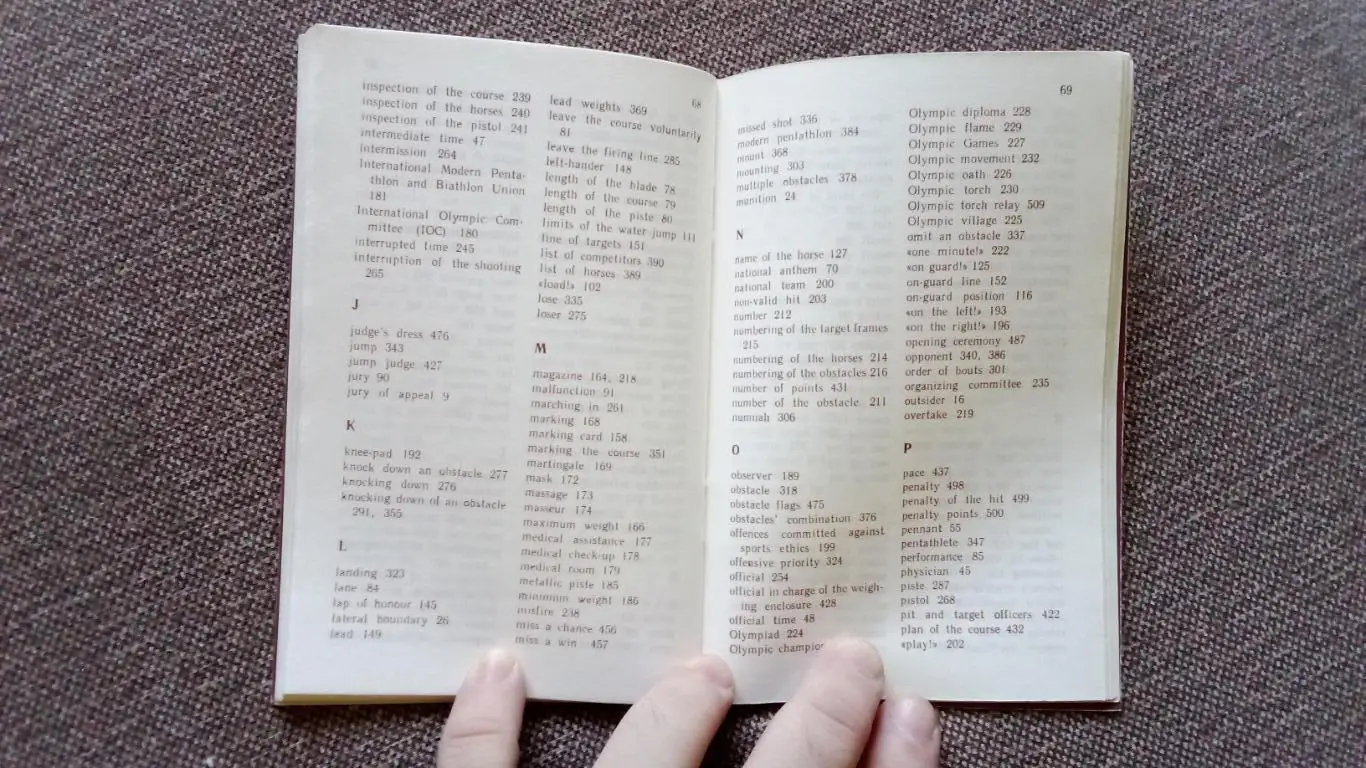 68
inspection of the course 239
inspection of the horses 240
inspection of the pistol 241
intermediate time 47
intermission 264
International Modern Penta-
thlon and Biathlon Union
181
International Olympic Com-
mittee (IOC) 180
interrupted time 245
interruption of the shooting
265
J
judge's dress 476
jump 343
jump judge 427
jury 90
jury of appeal 9
K
knee-pad 192
knock down an obstacle 277
knocking down 276
knocking down of an obstacle
291, 355
L
landing 323
lane 84
lap of honour 145
lateral boundary 26
lead 149
lead weights 369
leave the course voluntarily
81
leave the firing line 285
left-hander 148
length of the blade 78
length of the course 79
length of the piste 80
limits of the water jump 111
line of targets 151
list of competitors 390
list of horses 389
«load!» 102
lose 335
loser 275
M
magazine 164, 218
malfunction 91
marching in 261
marking 168
marking card 158
marking the course 351
martingale 169
mask 172
massage 173
masseur 174
maximum weight 166
medical assistance 177
medical check-up 178
medical room 179
metallic piste 185
minimum weight 186
misfire 238
miss a chance 456
miss a win 457
69
missed shot 336
modern pentathlon 384
mount 368
mounting 303
multiple obstacles 378
munition 24
N
name of the horse 127
national anthem 70
national team 200
non-valid hit 203
number 212
numbering of the target frames
215
numbering of the horses 214
numbering of the obstacles 216
number of points 431
number of the obstacle 211
numnah 306
O
observer 189
obstacle 318
obstacle flags 475
obstacles' combination 376
offences committed against
sports ethics 199
offensive priority 324
official 254
official in charge of the weigh-
ing enclosure 428
official time 48
Olympiad 224
Olympic
Olympic diploma 228
Olympic flame 229
Olympic Games 227
Olympic movement 232
Olympic oath 226
Olympic torch 230
Olympic torch relay 509
Olympic village 225
omit an obstacle 337
«one minute!» 222
«on guard!» 125
on-guard line 152
on-guard position 116
«on the left!» 193
«on the right!» 196
opening ceremony 487
opponent 340, 386
order of bouts 301
organizing committee 235
outsider 16
overtake 219
P
pace 437
penalty 498
penalty of the hit 499
penalty points 500
pennant 55
pentathlete 347
performance 85
physician 45
piste 287
pistol 268
pit and target officers 422
plan of the course 432
«play!» 202